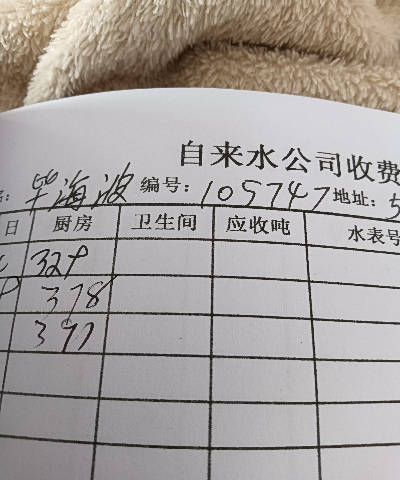 自来水公司收费
毕海波 编号: 105747 地址: 5
日 厨房 卫生间 应收吨 水表号
329
378
397